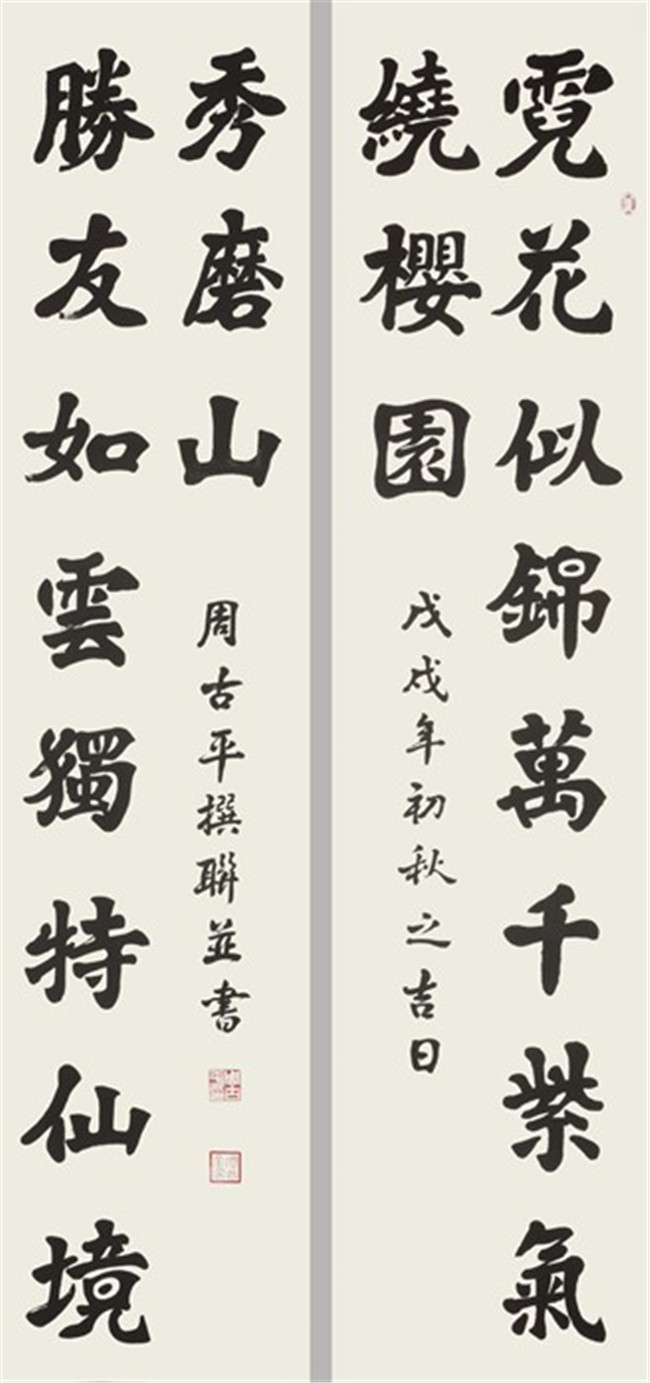 霓花似錦萬千紫氣
繞櫻園
戊戌年初秋之吉日
勝友如雲獨特仙境
秀磨山
周古平撰聯並書